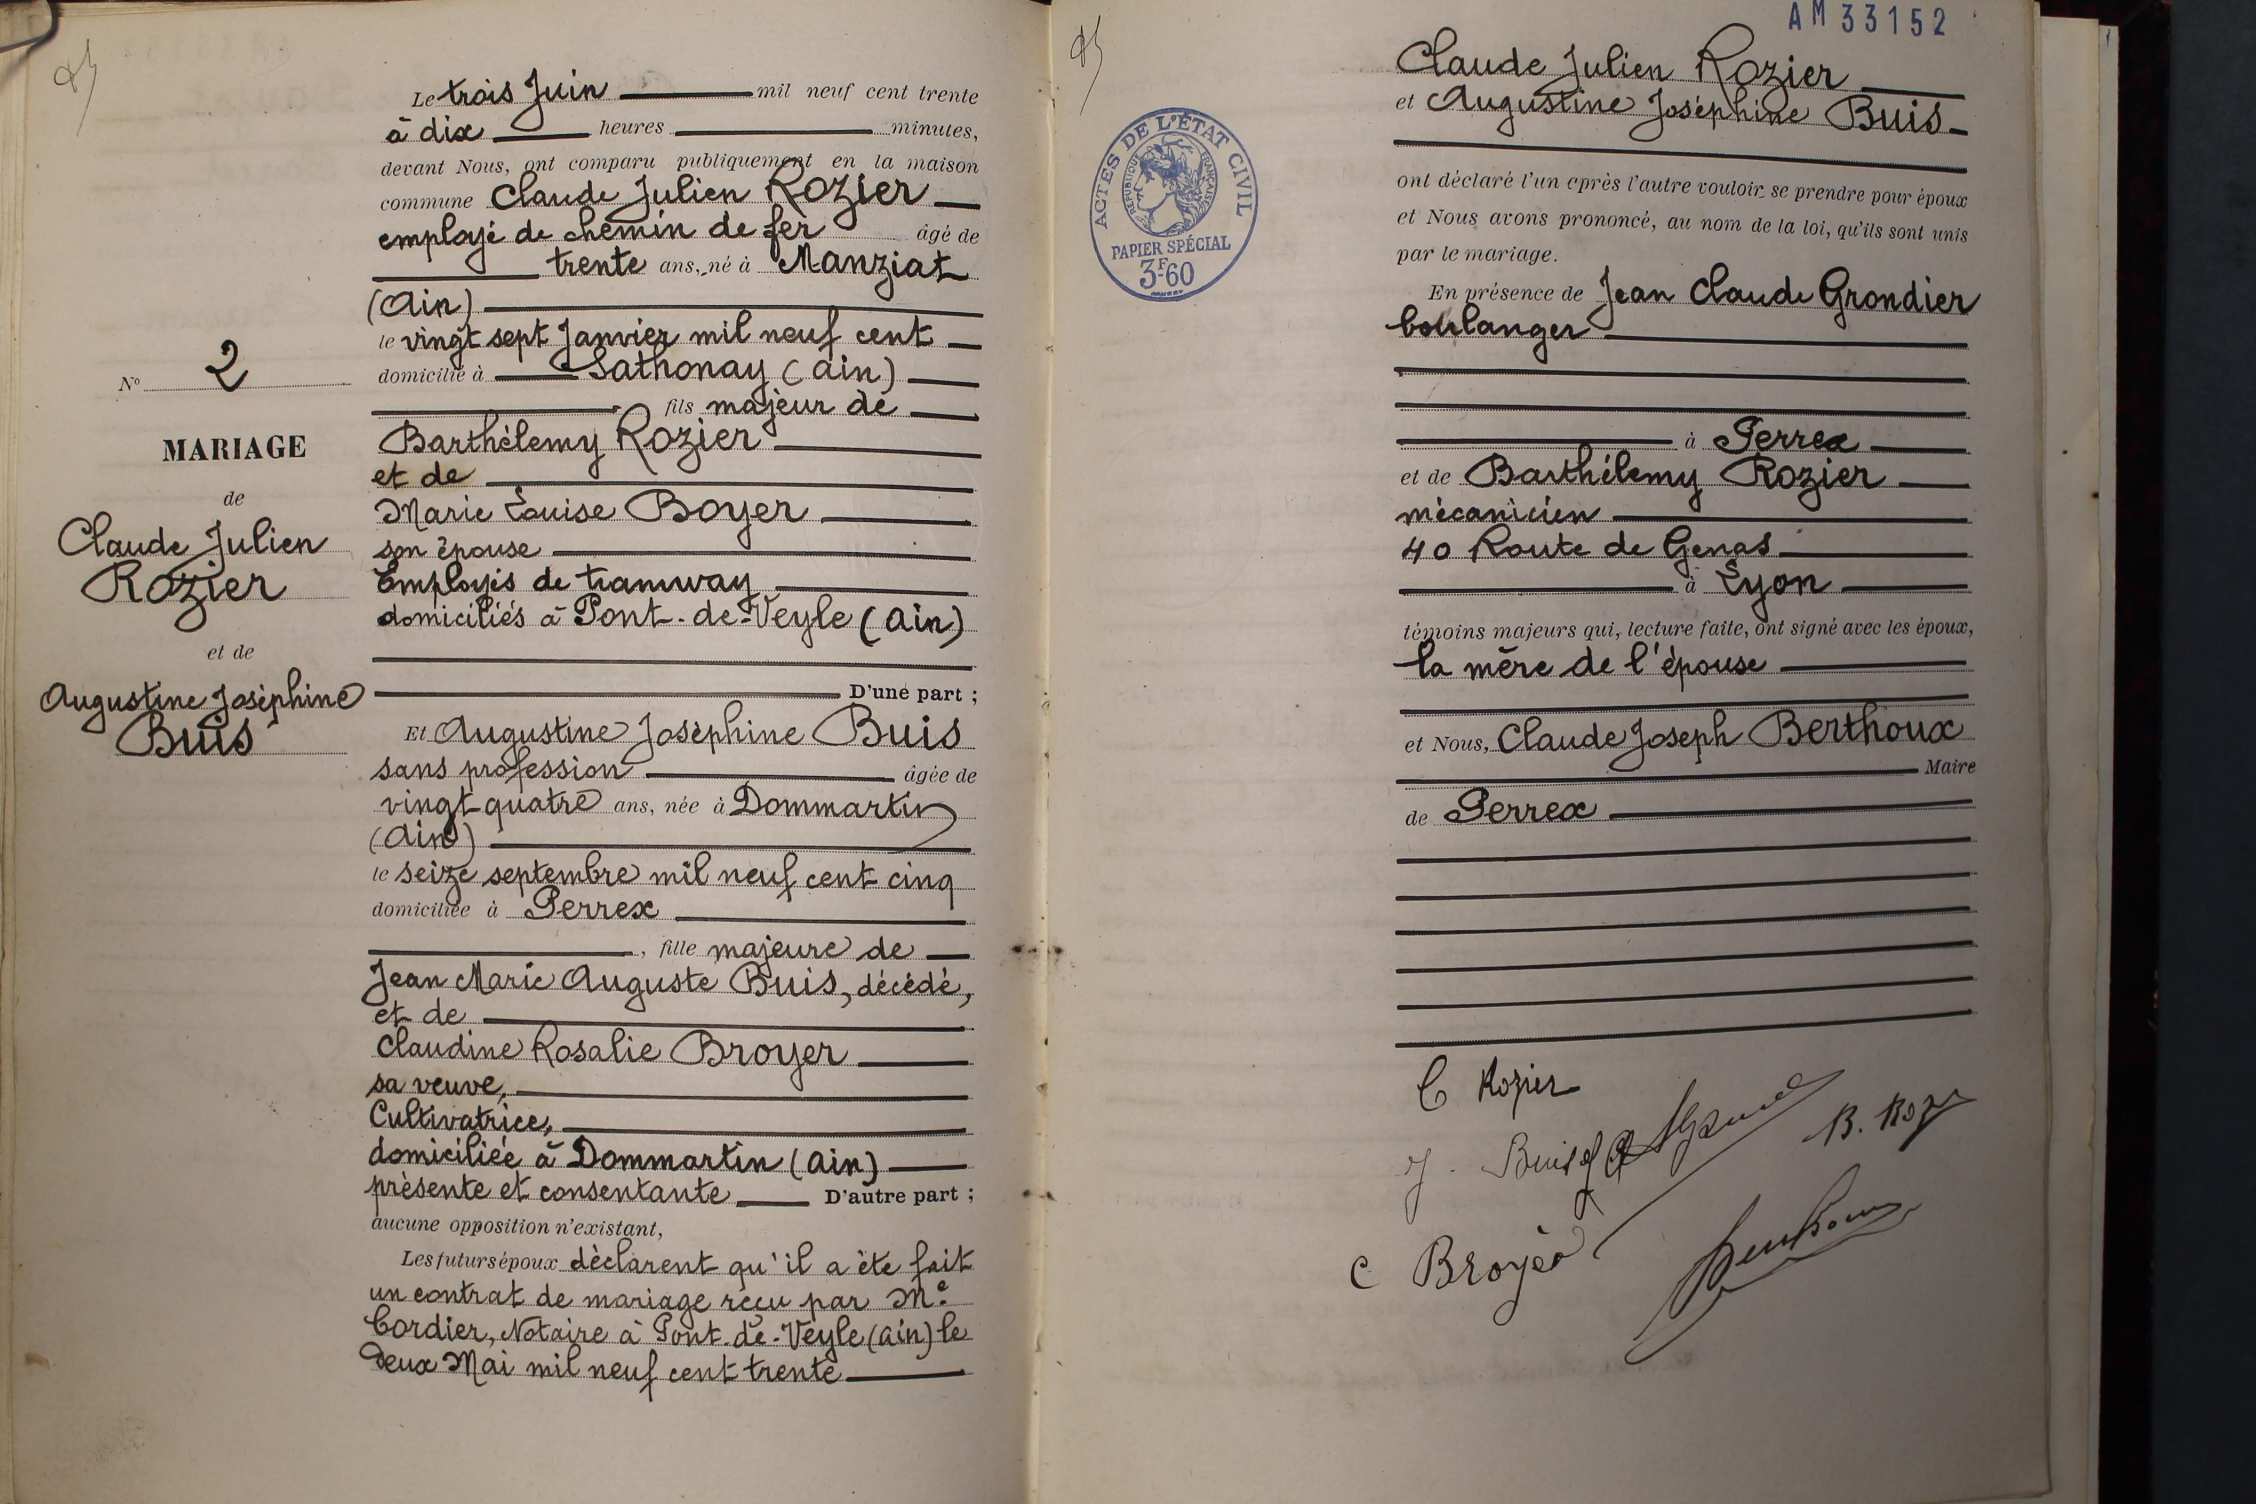 N° 2
MARIAGE
de
Claude Julien
Rozier
et de
Augustine Joséphine
Buis
Le trois Juin mil neuf cent trente
à dix heures minutes,
devant Nous, ont comparu publiquement en la maison
commune Claude Julien Rozier
employé de chemin de fer âgé de
trente ans, né à Manziat
(Ain)
le vingt sept Janvier mil neuf cent
domicilié à Sathonay (Ain)
fils majeur de
Barthélemy Rozier
et de
Marie Louise Boyer
son épouse
Employés de tramway
domiciliés à Pont-de-Veyle (Ain)
D'une part ;
Et Augustine Joséphine Buis
sans profession âgée de
vingt quatre ans, née à Dommartin
(Ain)
le seize septembre mil neuf cent cinq
domiciliée à Perrex
, fille majeure de
Jean Marie Auguste Buis, décédé,
et de
Claudine Rosalie Broyer
sa veuve,
Cultivatrice,
domiciliée à Dommartin (Ain)
présente et consentante D'autre part ;
aucune opposition n'existant,
Les futurs époux déclarent qu'il a été fait
un contrat de mariage reçu par Me
Cordier, Notaire à Pont-de-Veyle (Ain) le
deux Mai mil neuf cent trente
AM 33152
ACTES DE L'ÉTAT CIVIL
RÉPUBLIQUE FRANÇAISE
PAPIER SPÉCIAL
3F60
Claude Julien Rozier
et Augustine Joséphine Buis
ont déclaré l'un après l'autre vouloir se prendre pour époux
et Nous avons prononcé, au nom de la loi, qu'ils sont unis
par le mariage.
En présence de Jean Claude Grondier
boulanger
à Perrex
et de Barthélemy Rozier
mécanicien
40 Route de Genas
à Lyon
témoins majeurs qui, lecture faite, ont signé avec les époux,
la mère de l'épouse
et Nous, Claude Joseph Berthoux
Maire
de Perrex
C Rozier
J. Buis
B. Roz
C Broyer